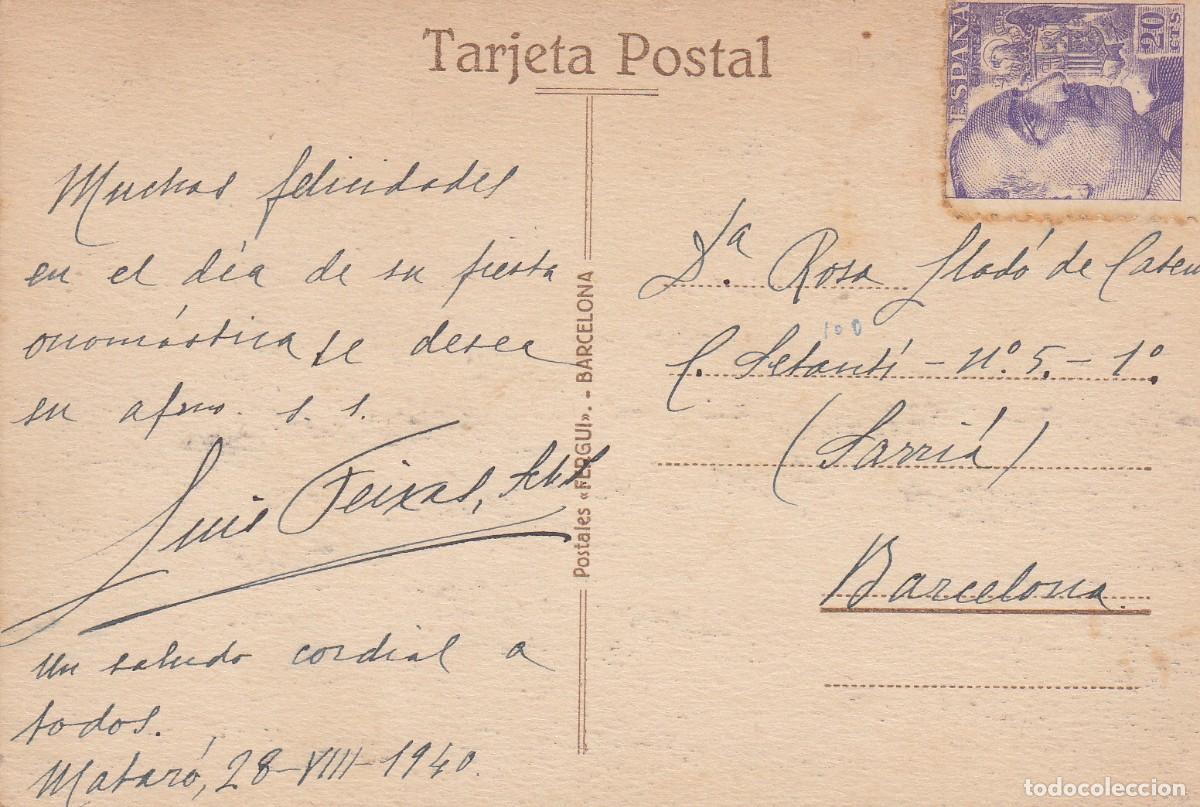 Tarjeta Postal
ESPAÑA
CORREOS
20
CTS
Muchas felicidades
en el día de su fiesta
onomástica le desea
su afmo. s. s.
Luis Feixas,
Un saludo cordial a
todos.
Mataró, 28-VIII-1940.
Postales «FERGUI». - BARCELONA
Dª. Rosa Lladó de
100
C. Setantí - Nº. 5. - 1º.
(Sarriá)
Barcelona.
todocoleccion